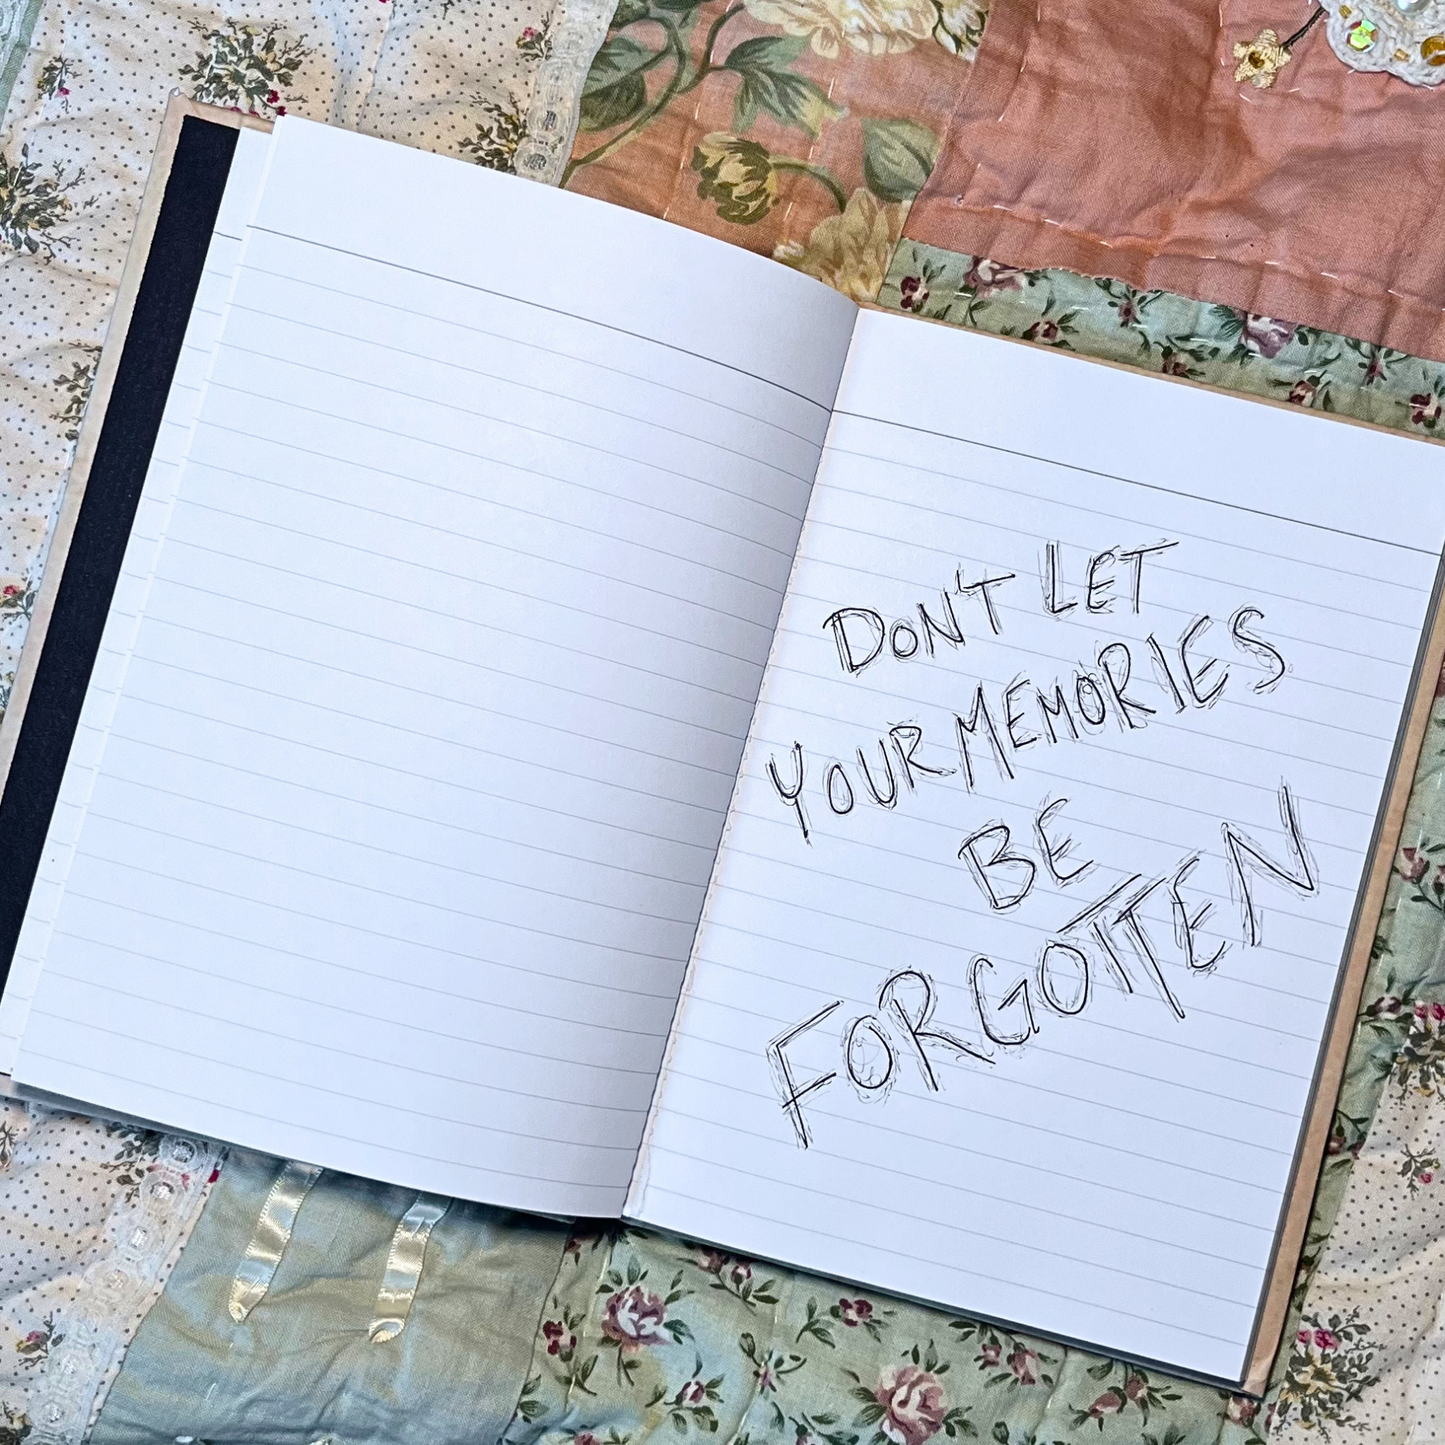 DON'T LET
YOUR MEMORIES
BE
FORGOTTEN